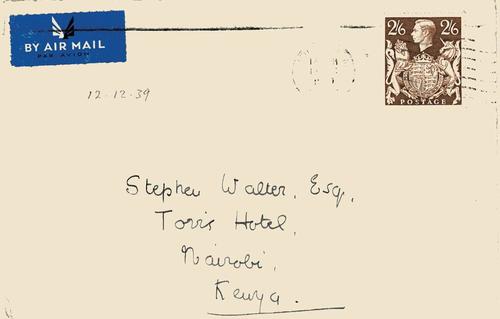 BY AIR MAIL
PAR AVION
2/6 2/6
POSTAGE
12-12-39
Stephen Walter, Esq,
Torr's Hotel,
Nairobi,
Kenya.